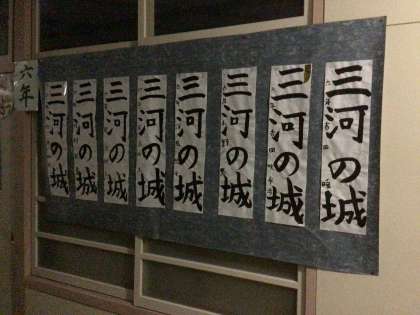 三河の城
三河の城
三河の城
三河の城
三河の城
三河の城
三河の城
三河の城
六年